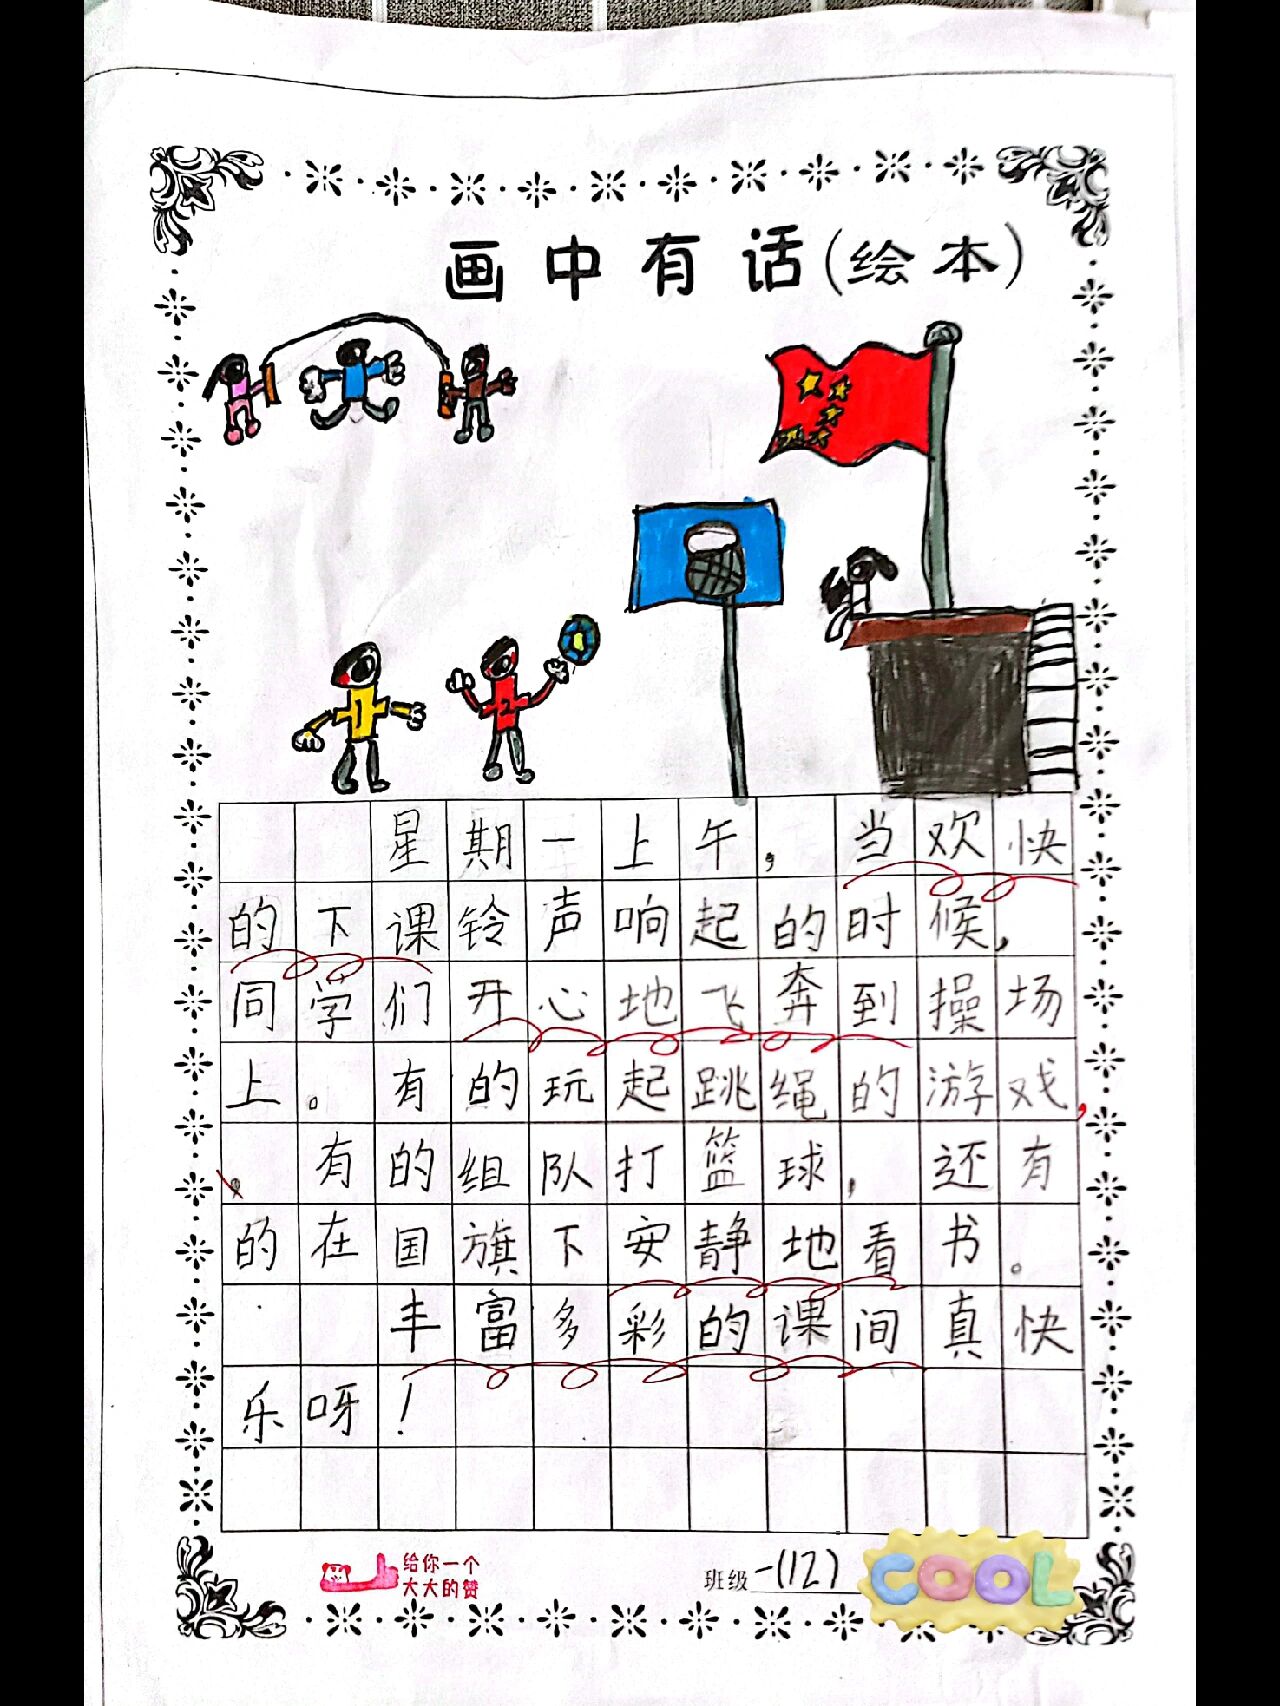 画中有话(绘本)
1
2
星期一上午，当欢快
的下课铃声响起的时候，
同学们开心地飞奔到操场
上。有的玩起跳绳的游戏，
有的组队打篮球，还有
的在国旗下安静地看书。
丰富多彩的课间真快
乐呀！
给你一个
大大的赞
班级 一(12)
COOL